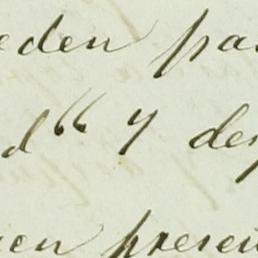 eden pa
d" y de
en presen